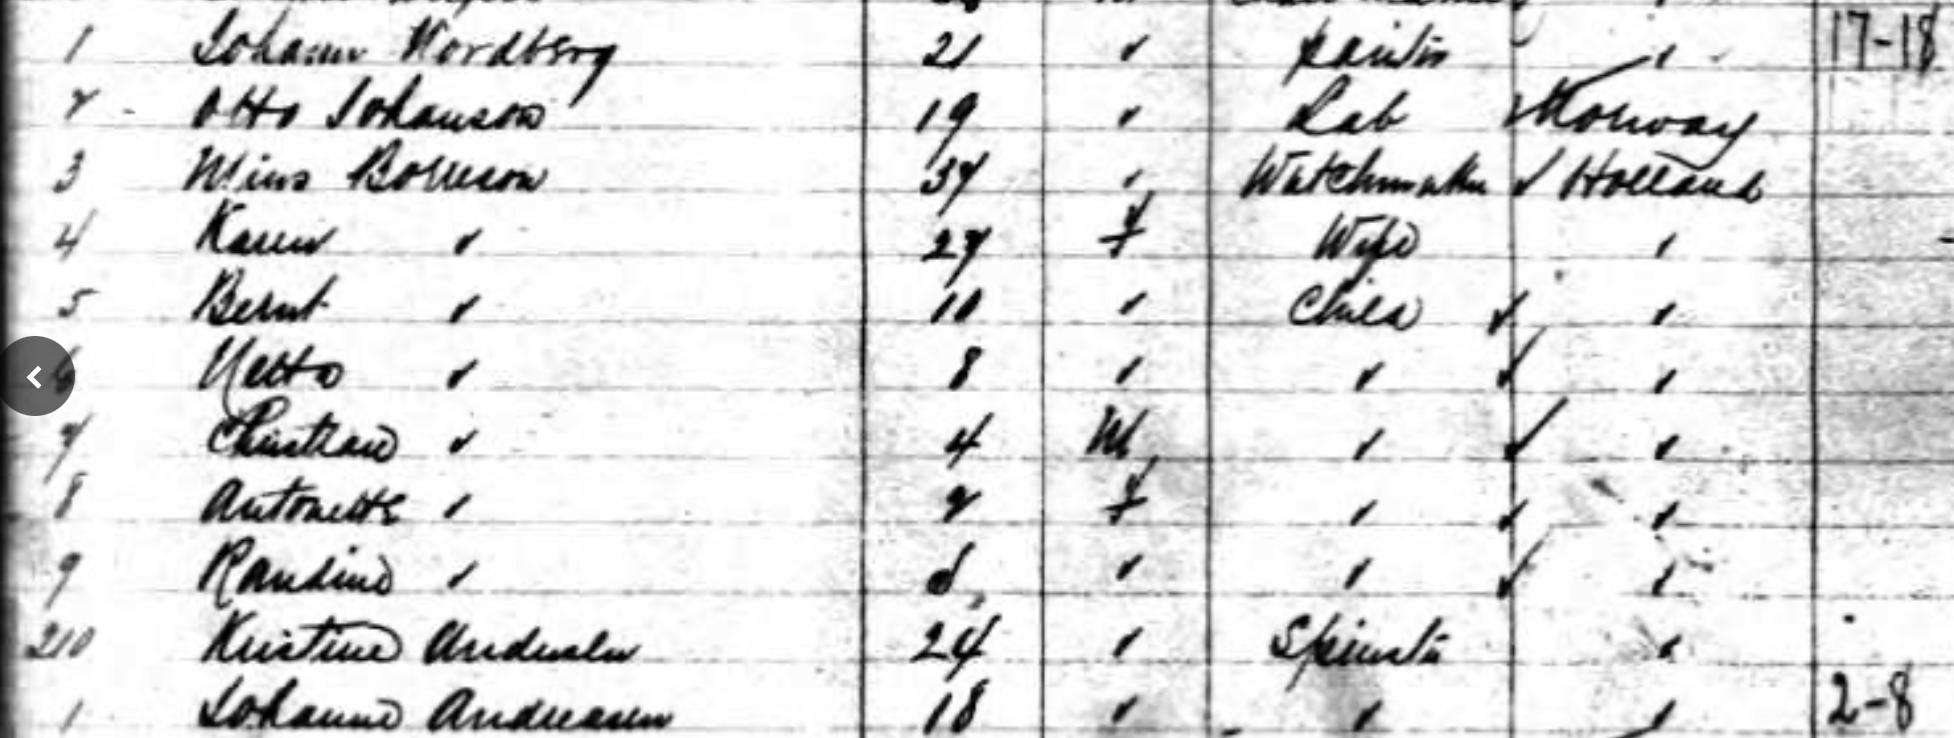 1 Johann Nordberg 21 " painter "
2 - Otto Johanson 19 " Lab Norway 17-18
3 Mins Borreson 37 " Watchmaker ✓ Holland
4 Karen " 27 f Wife "
5 Bernt " 10 " Child ✓ "
6 " 8 " " ✓ "
7 Christian " 4 M " ✓ "
8 Antonette " 2 f " ✓ "
9 Randine " " " ✓ "
210 Kristine Andersen 24 " Spinster "
1 Johanne Andreasen 18 " " " 2-8